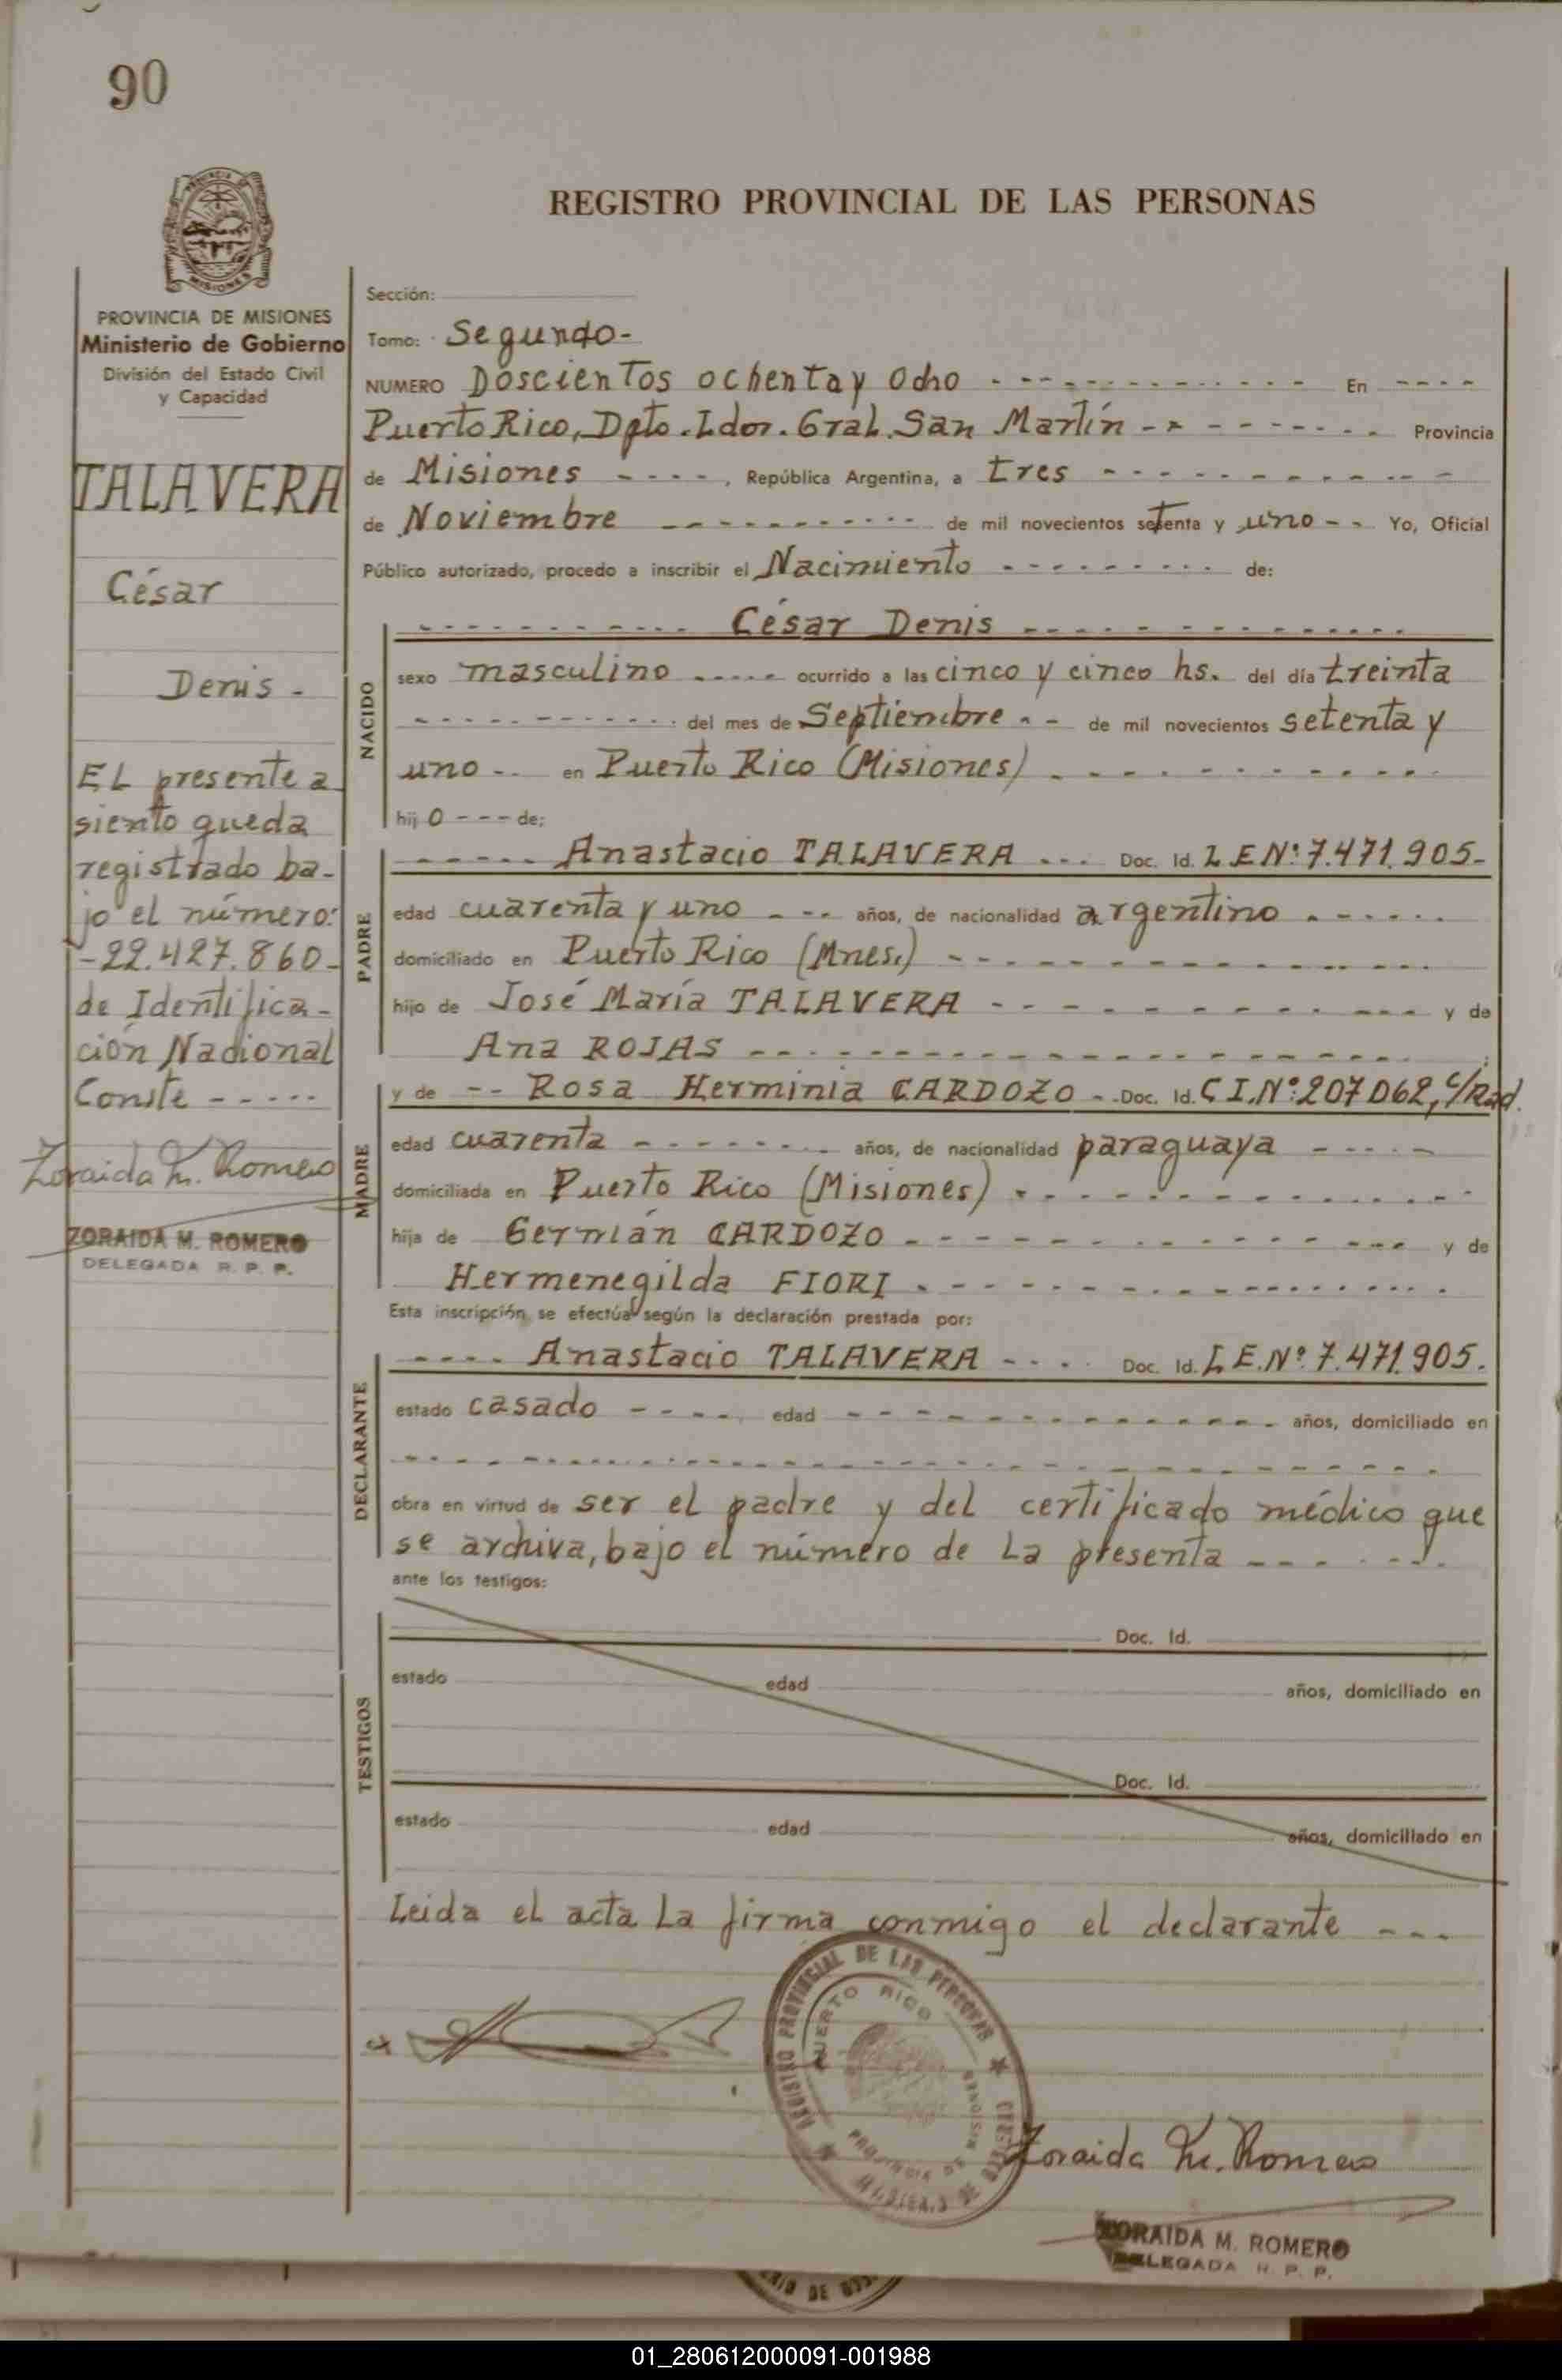 90
REGISTRO PROVINCIAL DE LAS PERSONAS
PROVINCIA DE MISIONES
Ministerio de Gobierno
División del Estado Civil
y Capacidad
TALAVERA
César
Denis -
EL presente a
siento queda
registrado ba-
jo el número:
-22.427.860-
de Identifica-
ción Nacional
Conste -----
Zoraida M. Romero
ZORAIDA M. ROMERO
DELEGADA R. P. P.
Sección:
Tomo: Segundo-
NUMERO Doscientos ochenta y Ocho - - - - En - - - -
Puerto Rico, Dpto. Ldor. Gral. San Martín - - - - Provincia
de Misiones - - - -, República Argentina, a tres - - - -
de Noviembre - - - - de mil novecientos setenta y uno - - Yo, Oficial
Público autorizado, procedo a inscribir el Nacimiento - - - - de:
NACIDO
- - - - César Denis - - - -
sexo masculino - - - - ocurrido a las cinco y cinco hs. del día treinta
- - - - del mes de Septiembre - - de mil novecientos setenta y
uno - - en Puerto Rico (Misiones) - - - -
hijo - - - de:
PADRE
- - - - Anastacio TALAVERA - - - Doc. Id. L E Nº: 7.471.905-
edad cuarenta y uno - - - años, de nacionalidad argentino - - - -
domiciliado en Puerto Rico (Mnes.) - - - -
hijo de José María TALAVERA - - - - y de
Ana ROJAS - - - -
MADRE
y de - - Rosa Herminia CARDOZO - - Doc. Id. C I. Nº: 207062, c/Rad.
edad cuarenta - - - - años, de nacionalidad paraguaya - - - -
domiciliada en Puerto Rico (Misiones) - - - -
hija de Germán CARDOZO - - - - y de
Hermenegilda FIORI - - - -
Esta inscripción se efectúa según la declaración prestada por:
DECLARANTE
- - - - Anastacio TALAVERA - - - - Doc. Id. L E. Nº. 7.471.905.
estado casado - - - - edad - - - - años, domiciliado en
- - - -
obra en virtud de ser el padre y del certificado médico que
se archiva, bajo el número de La presenta - - - -
ante los testigos:
TESTIGOS
Doc. Id.
estado edad años, domiciliado en
Doc. Id.
estado edad años, domiciliado en
Leida el acta La firma conmigo el declarante - - -
REGISTRO PROVINCIAL DE LAS PERSONAS
PUERTO RICO
PROVINCIA DE MISIONES
Zoraida M. Romero
ZORAIDA M. ROMERO
DELEGADA R. P. P.
01_280612000091-001988